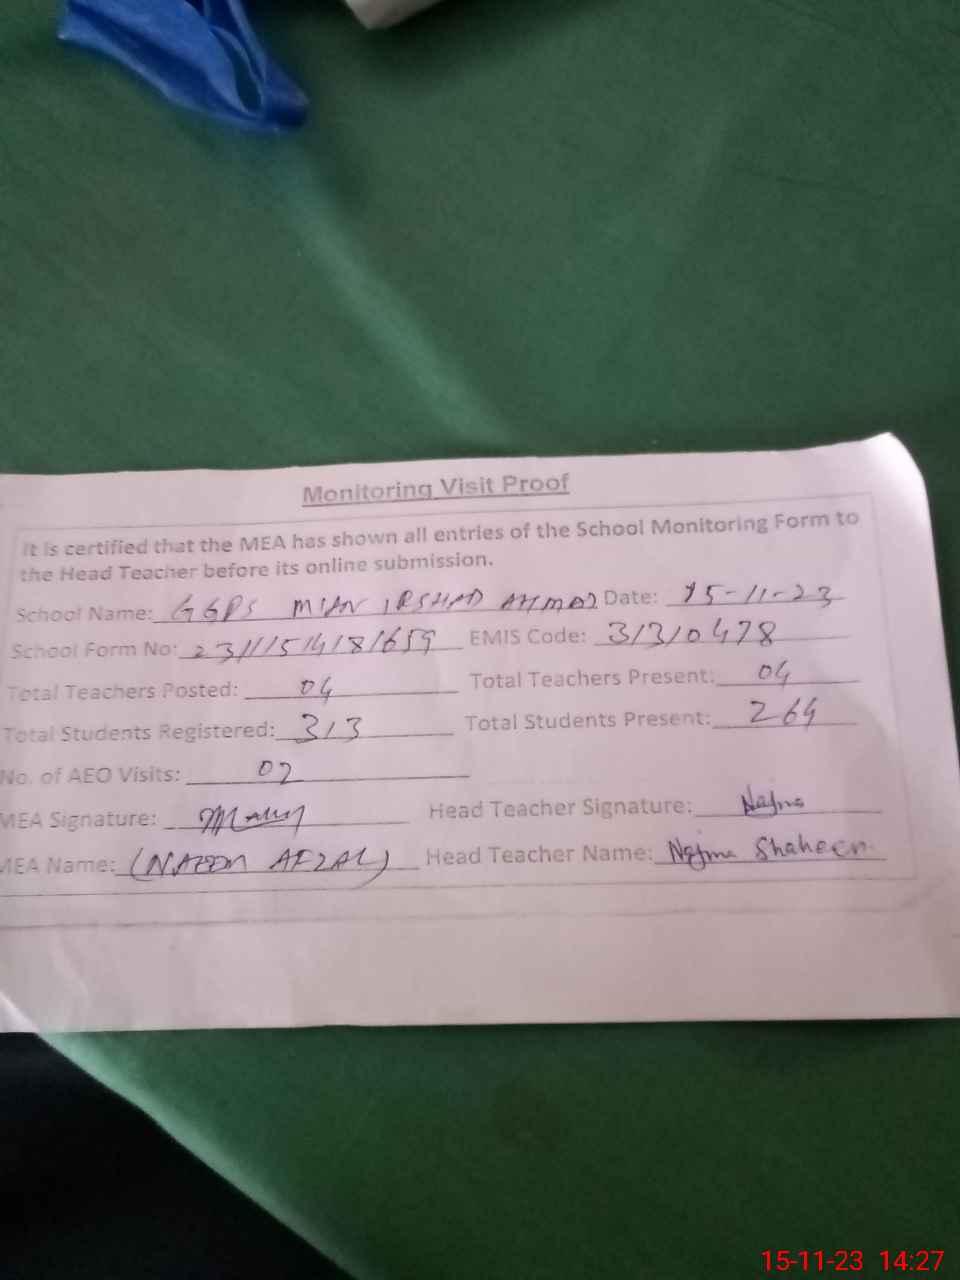 Monitoring Visit Proof
It is certified that the MEA has shown all entries of the School Monitoring Form to
the Head Teacher before its online submission.
School Name: GGPS MIAN IRSHAD AHMAD Date: 15-11-23
School Form No: 23111514181659 EMIS Code: 31310478
Total Teachers Posted: 04 Total Teachers Present: 04
Total Students Registered: 313 Total Students Present: 264
No. of AEO Visits: 02
MEA Signature: Head Teacher Signature: Najma
MEA Name: (NAEEM AFZAL) Head Teacher Name: Najma Shaheen
15-11-23 14:27